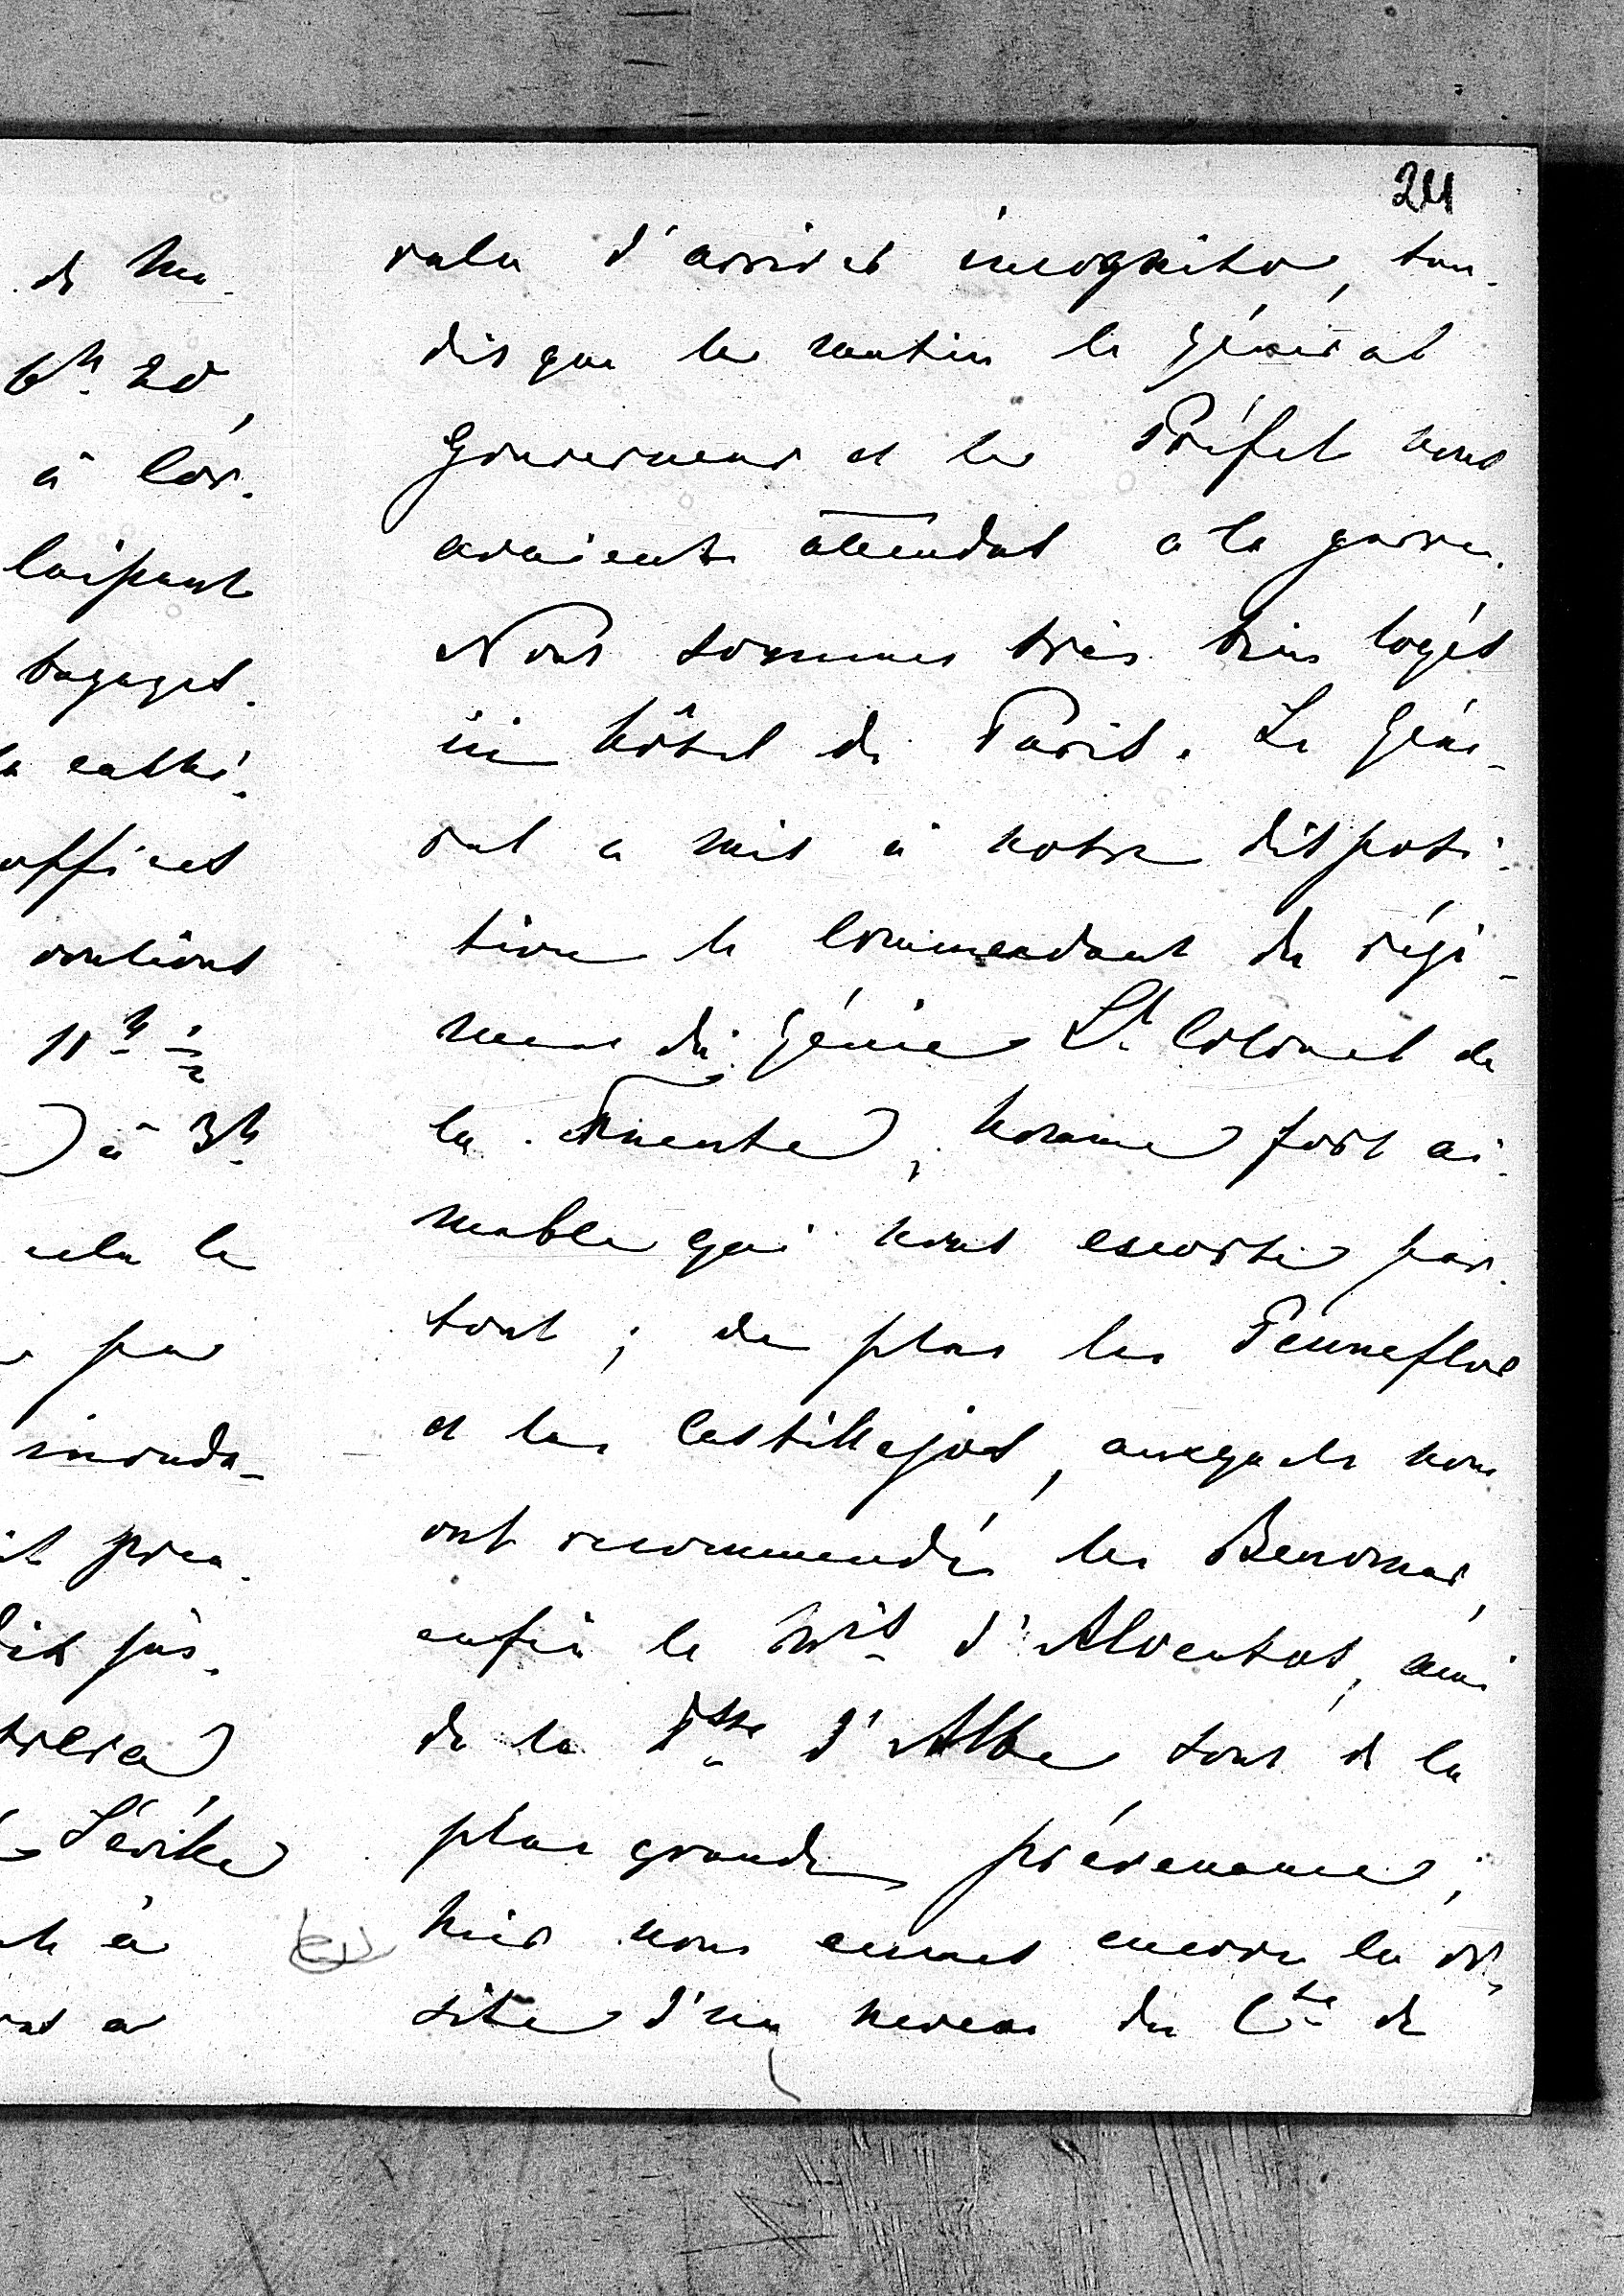 24
de Ma-
6h. 20,
à Cor-
laissant
bagages.
la cathé-
offices
voulions
11h ½
) à 3h
cela le
pu
inonda-
pren-
jus-
Séville
à
a
valu d'arriver incognito, tan-
dis que le matin le général
gouverneur et le Préfet nous
avaient attendus à la gare.
Nous sommes très bien logés
ici hôtel de Paris. Le géné-
ral a mis à notre disposi-
tion le commandant du régi-
ment du génie Lt Colonel de
la Fuente, homme fort ai-
mable qui nous escorte par-
tout ; de plus les Peñaflor
et les Castillejos, auxquels nous
ont recommandés les Benomar,
enfin le Mis d'Alventos, ami
de la Dsse d'Albe sont de la
plus grande prévenance ;
hier nous eumes encore la vi-
site d'un neveu du Cte de